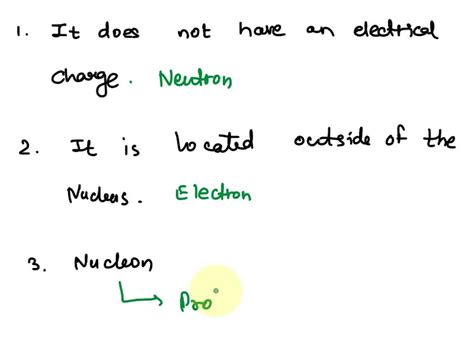 1. It does not have an electrical
charge. Neutron
2. It is located outside of the
Nucleus. Electron
3. Nucleon
Pro